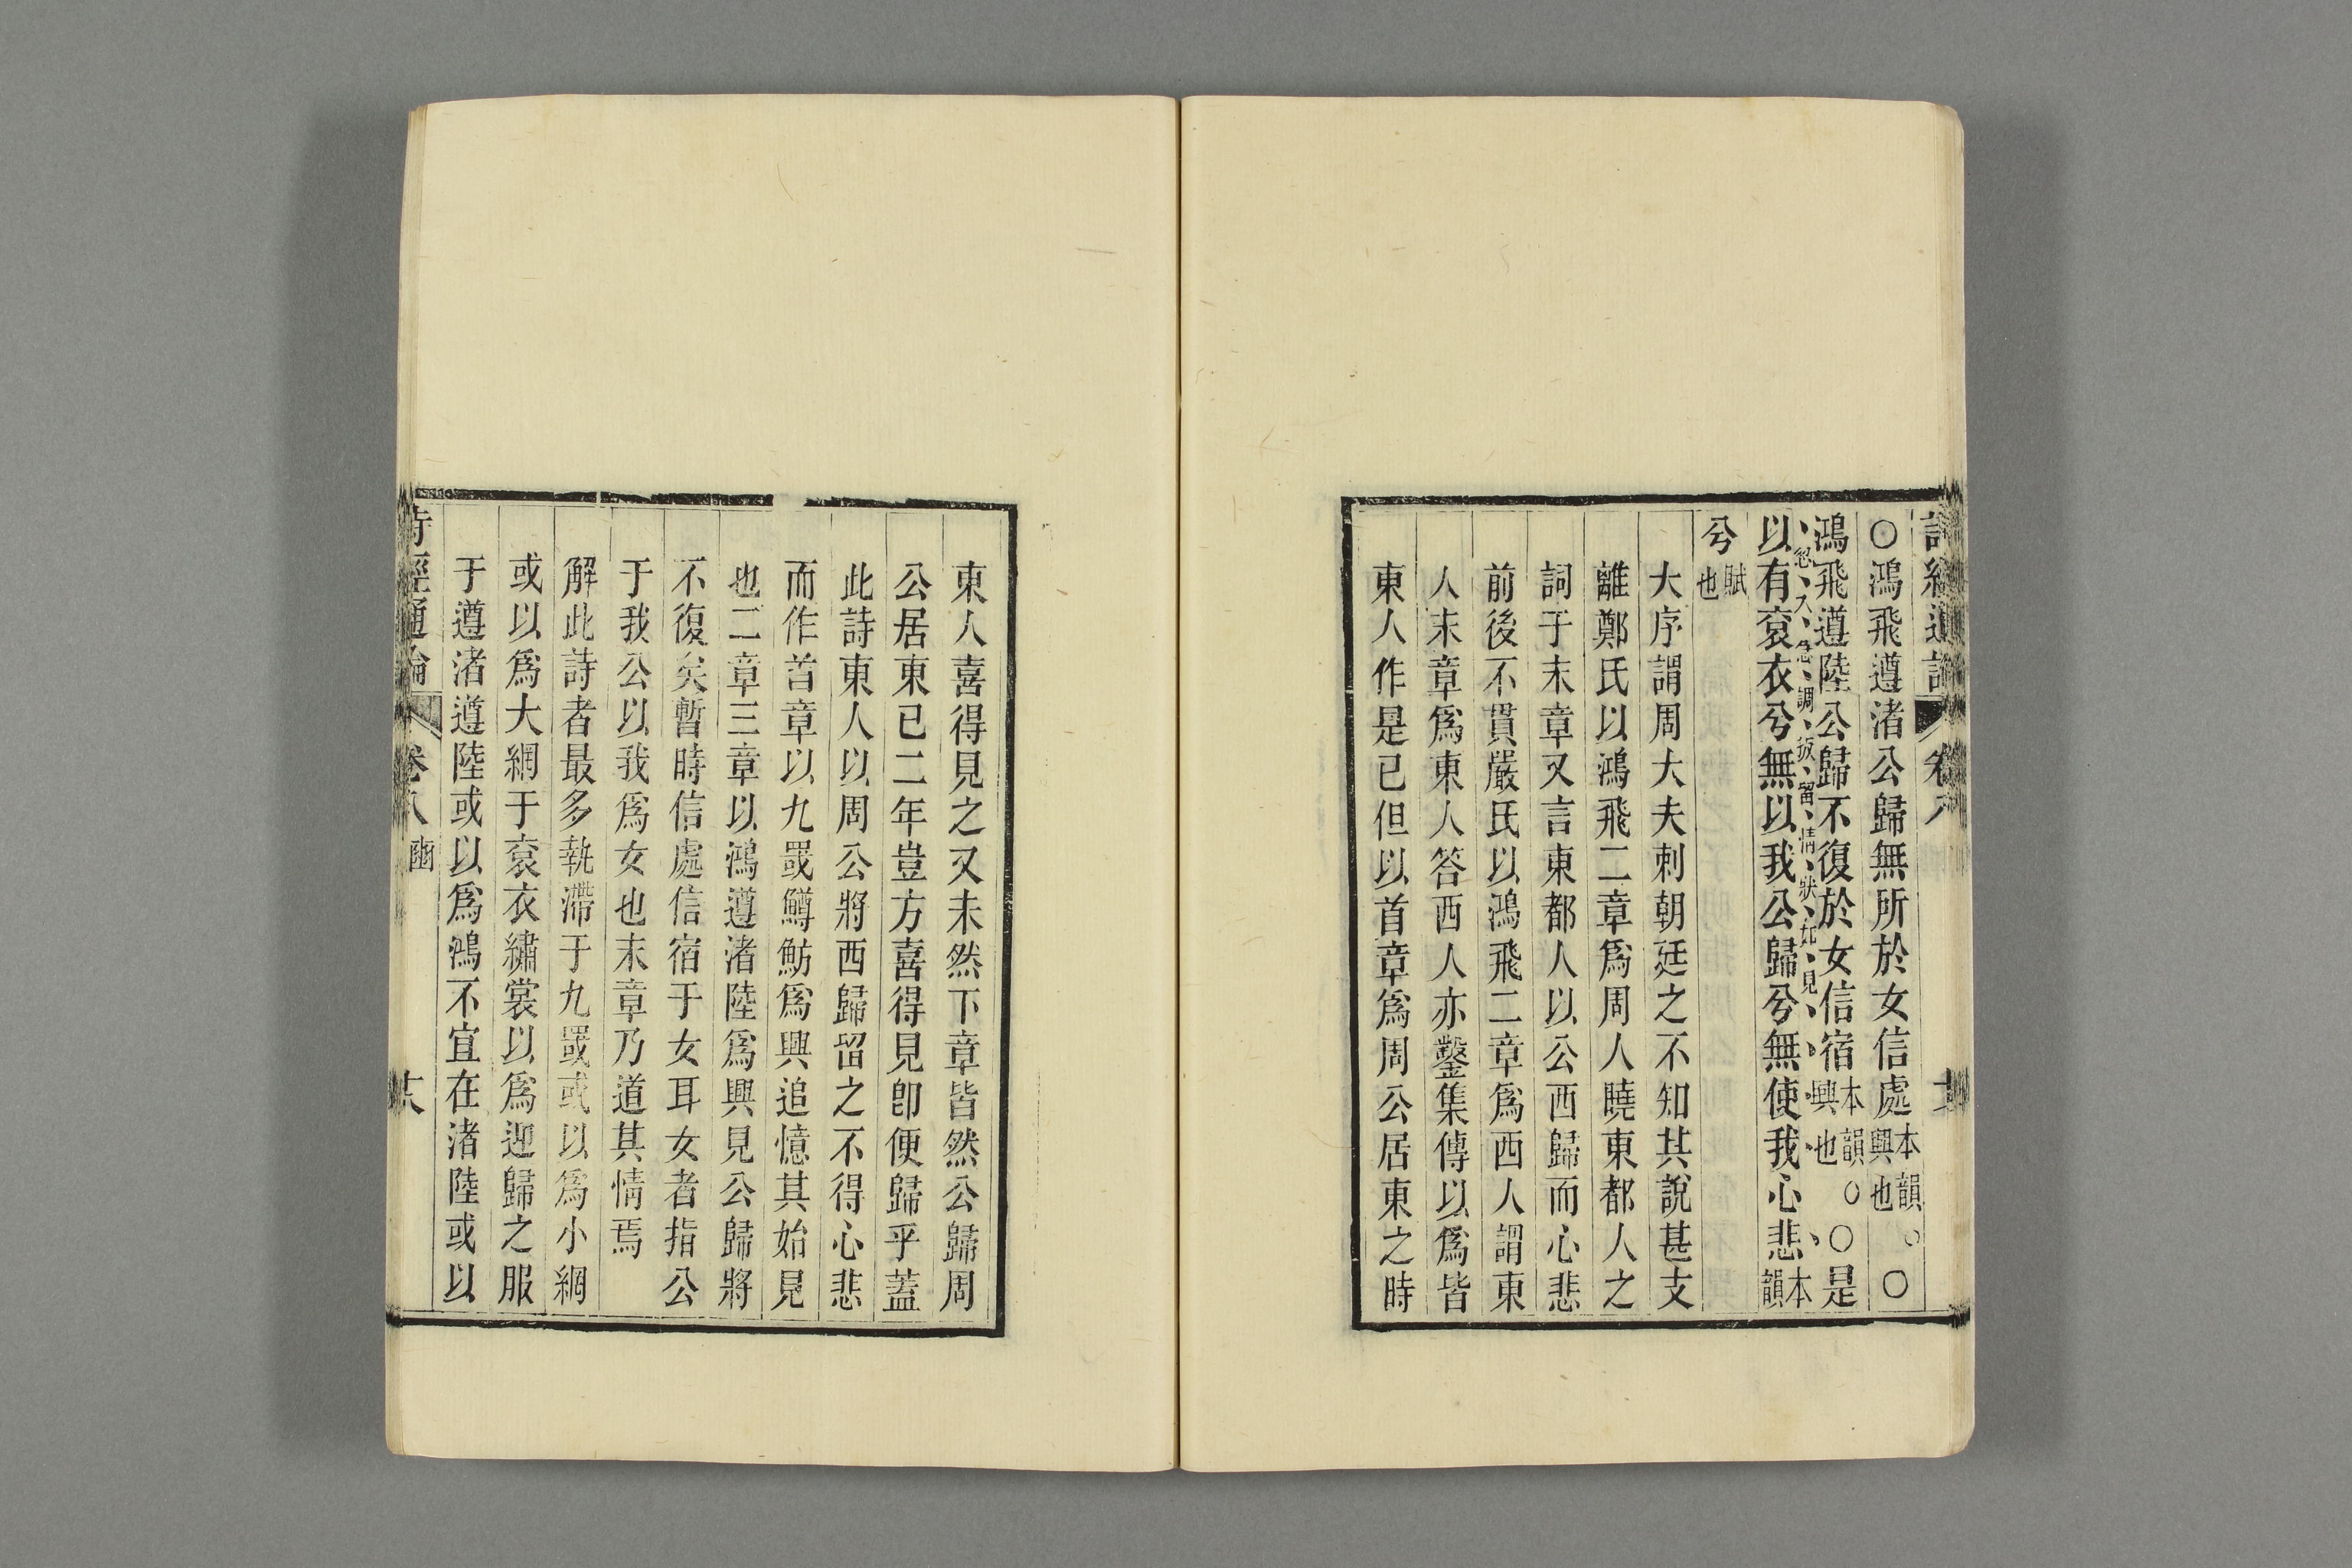 ○鴻飛遵渚公歸無所於女信處本韻○興也○
鴻飛遵陸公歸不復於女信宿本韻○興也○是
以有袞衣兮無以我公歸兮無使我心悲本韻
忽入急調扳留情狀如見
兮賦也
大序謂周大夫刺朝廷之不知其說甚支
離鄭氏以鴻飛二章爲周人曉東都人之
詞于末章又言東都人以公西歸而心悲
前後不貫嚴氏以鴻飛二章爲西人謂東
人末章爲東人答西人亦鑿集傳以爲皆
東人作是已但以首章爲周公居東之時
東人喜得見之又未然下章皆然公歸周
公居東已二年豈方喜得見卽便歸乎蓋
此詩東人以周公將西歸留之不得心悲
而作首章以九罭鱒魴爲興追憶其始見
也二章三章以鴻遵渚陸爲興見公歸將
不復矣暫時信處信宿于女耳女者指公
于我公以我爲女也末章乃道其情焉
解此詩者最多執滯于九罭或以爲小網
或以爲大網于袞衣繡裳以爲迎歸之服
于遵渚遵陸或以爲鴻不宜在渚陸或以
詩經通論 卷八 豳 十六